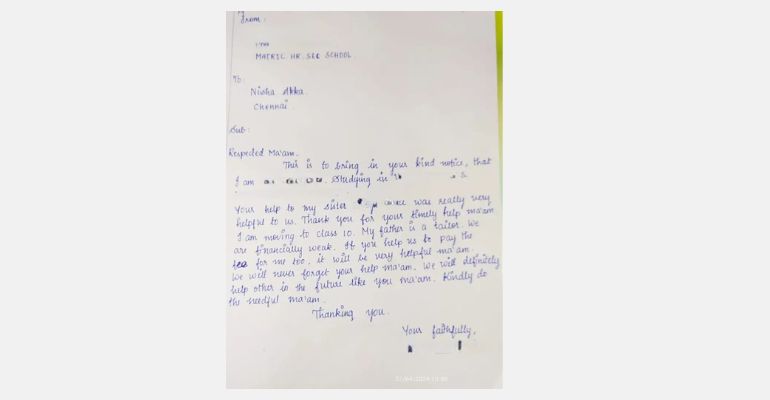 From:
MATRIC HR SEC SCHOOL.
To:
Nisha Akka
Chennai.
Sub:
Respected Ma'am.
This is to bring in your kind notice, that
I am studying in
Your help to my sister was really very
helpful to us. Thank you for your timely help ma'am
I am moving to class 10. My father is a tailor. We
are financially weak. If you help us to pay the
fee for me too, it will be very helpful ma'am.
We will never forget your help ma'am. We will definitely
help other in the future like you ma'am. Kindly do
the needful ma'am.
Thanking you.
Your faithfully,